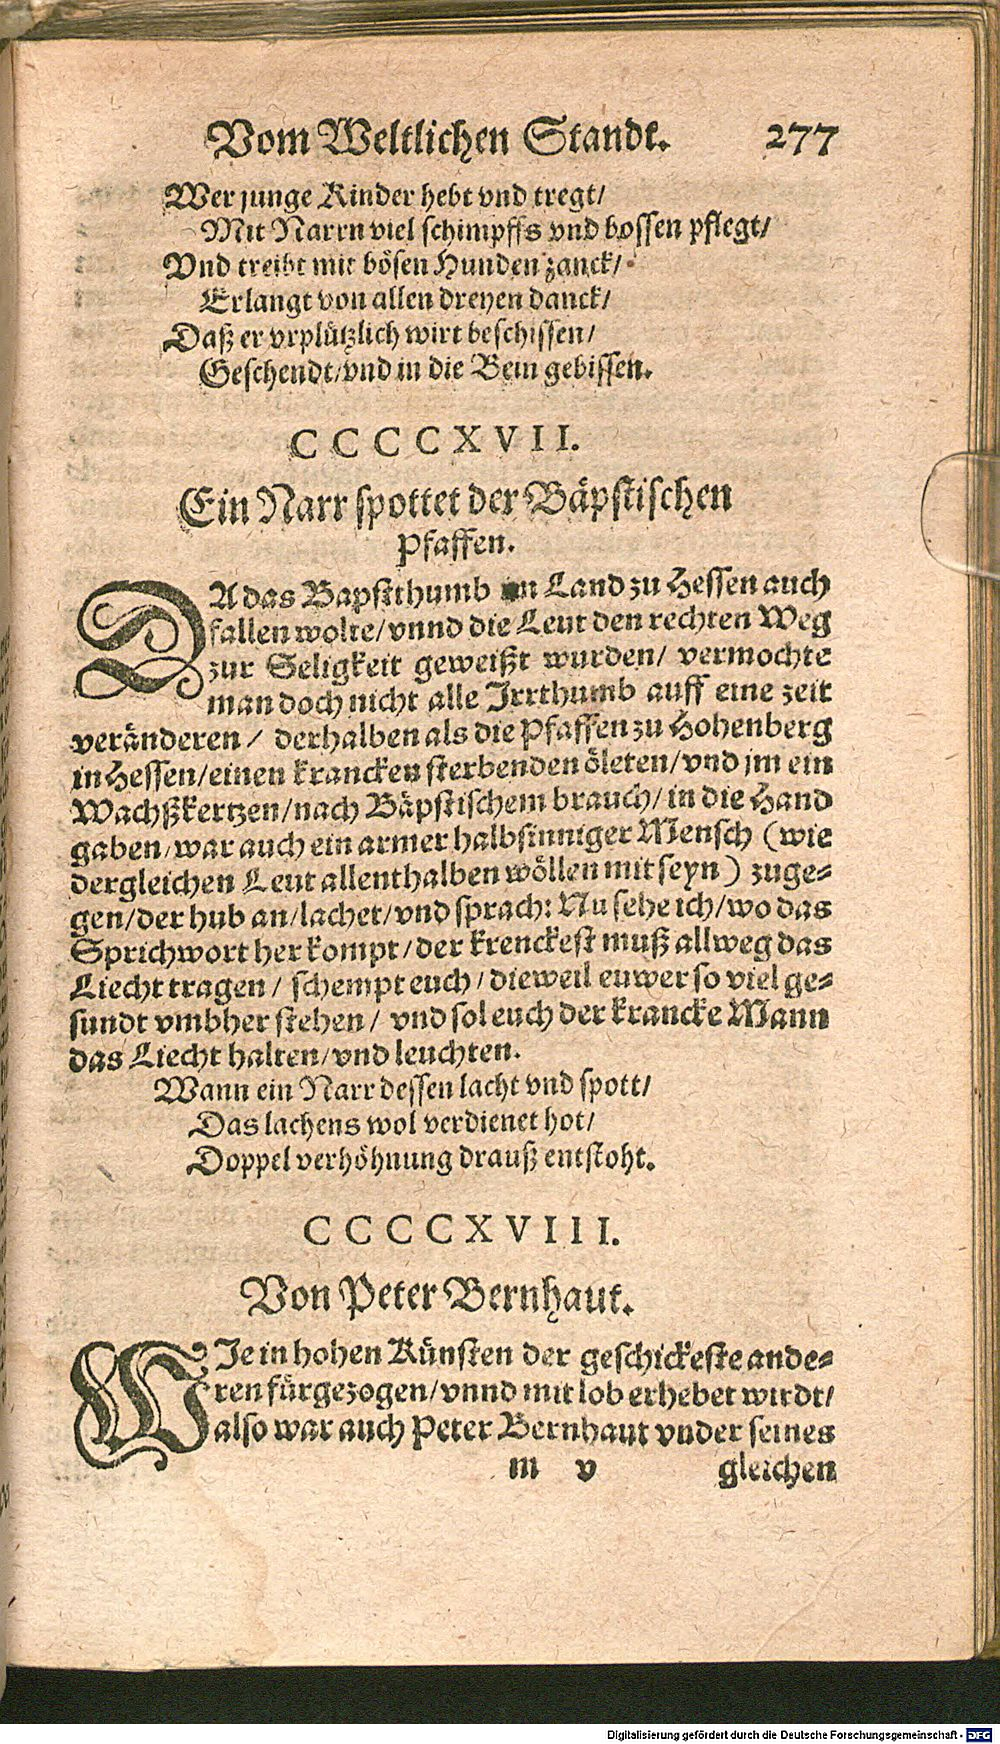 Vom Weltlichen Standt. 277
Wer junge Kinder hebt vnd tregt/
Mit Narrn viel schimpffs vnd bossen pflegt/
Vnd treibt mit bösen Hunden zanck/
Erlangt von allen dreyen danck/
Daß er vrplützlich wirt beschissen/
Geschendt/vnd in die Bein gebissen.
CCCCXVII.
Ein Narr spottet der Bäpstischen
Pfaffen.
DA das Bapstthumb im Land zu Hessen auch
fallen wolte/vnnd die Leut den rechten Weg
zur Seligkeit geweißt wurden/ vermochte
man doch nicht alle Irrthumb auff eine zeit
veränderen/ derhalben als die Pfaffen zu Hohenberg
in Hessen/einen krancken sterbenden öleten/vnd jm ein
Wachßkertzen/nach Bäpstischem brauch/in die Hand
gaben/war auch ein armer halbsinniger Mensch (wie
dergleichen Leut allenthalben wöllen mit seyn) zuge-
gen/der hub an/lachet/vnd sprach: Nu sehe ich/wo das
Sprichwort her kompt/der krenckest muß allweg das
Liecht tragen/ schempt euch/dieweil euwer so viel ge-
sundt vmbher stehen/ vnd sol euch der krancke Mann
das Liecht halten/vnd leuchten.
Wann ein Narr dessen lacht vnd spott/
Das lachens wol verdienet hot/
Doppel verhöhnung drauß entstoht.
CCCCXVIII.
Von Peter Bernhaut.
WIe in hohen Künsten der geschickeste ande-
ren fürgezogen/vnnd mit lob erhebet wirdt/
also war auch Peter Bernhaut vnder seines
m v gleichen
Digitalisierung gefördert durch die Deutsche Forschungsgemeinschaft - DFG